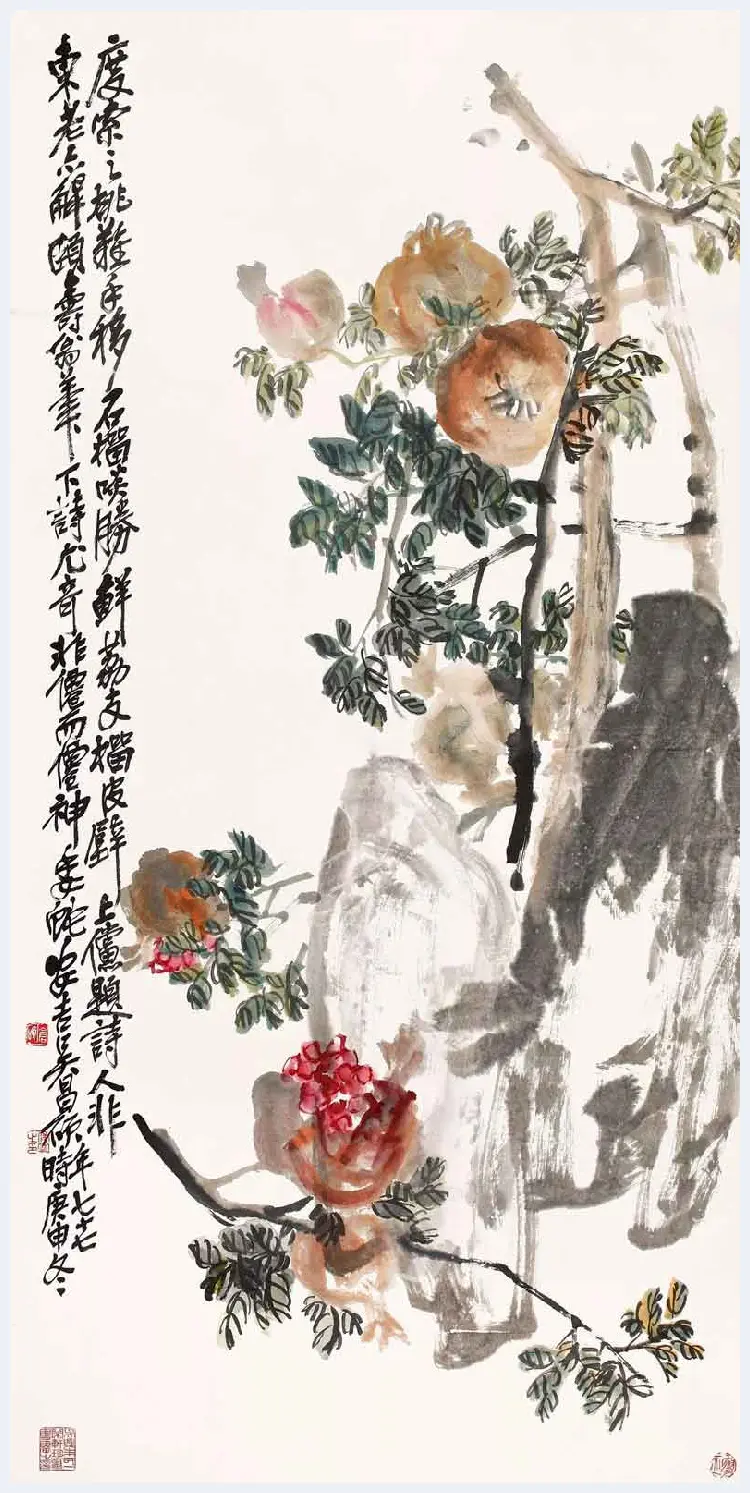 度索之桃難手移石榴啖勝鮮荔支榴皮壁上儻題詩人非
東老亦解頤壽翁筆下詩尤奇非僊而僊神委蛇安吉吳昌碩年七十七
時庚申冬